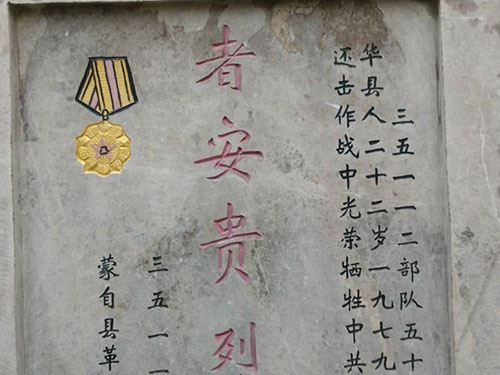 三五一一二部队五十
华县人二十二岁一九七九
还击作战中光荣牺牲中共
者安贵列
三五一一
蒙自县革